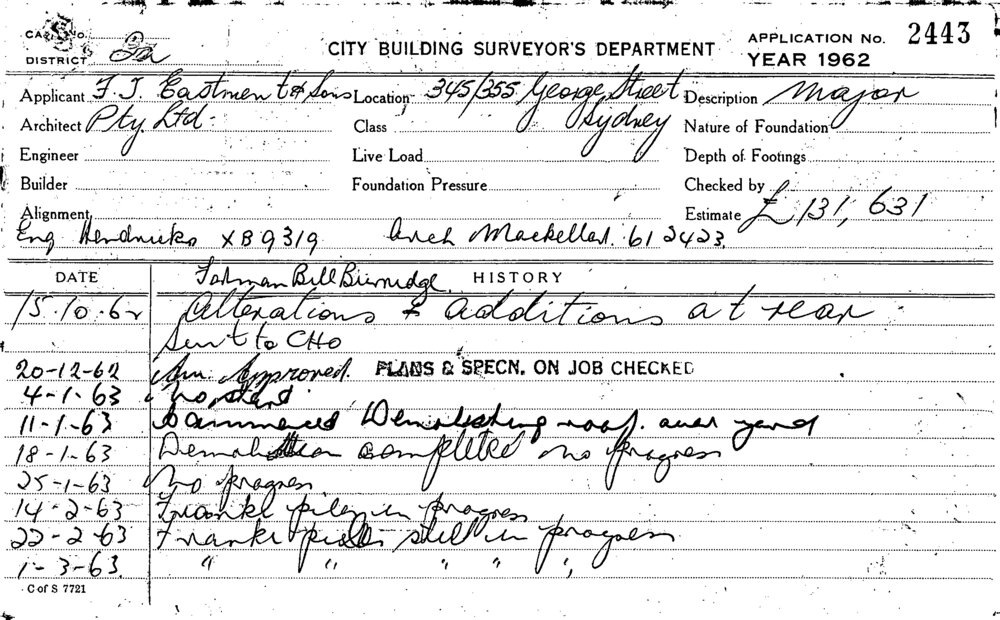 CARD No.
DISTRICT 2a
CITY BUILDING SURVEYOR'S DEPARTMENT
APPLICATION No. 2443
YEAR 1962
Applicant F. J. Eastment & Sons Location 345/355 George Street Description Major
Architect Pty. Ltd. Class Sydney Nature of Foundation
Engineer Live Load Depth of Footings
Builder Foundation Pressure Checked by
Alignment Estimate £ 131,631
Eng Hendricks XB9319 Arch Mackellar. 612423.
DATE Forman Bill HISTORY
15.10.62 Alterations & additions at rear
Sent to CHO
20-12-62 Approved. PLANS & SPECN. ON JOB CHECKED
4-1-63 No start
11-1-63 Commenced Demolishing roof over yard
18-1-63 Demolition completed no progress
25-1-63 No progress
14-2-63 Franki piles in progress
22-2-63 Franki piles still in progress
1-3-63. " " " " "
C of S 7721